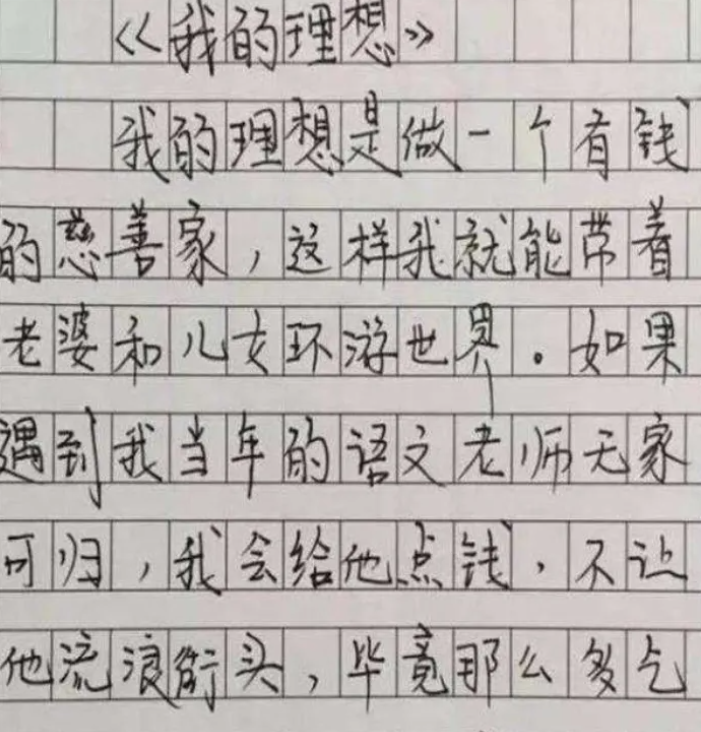 《我的理想》
我的理想是做一个有钱
的慈善家，这样我就能带着
老婆和儿女环游世界。如果
遇到我当年的语文老师无家
可归，我会给他点钱，不让
他流浪街头，毕竟那么多乞